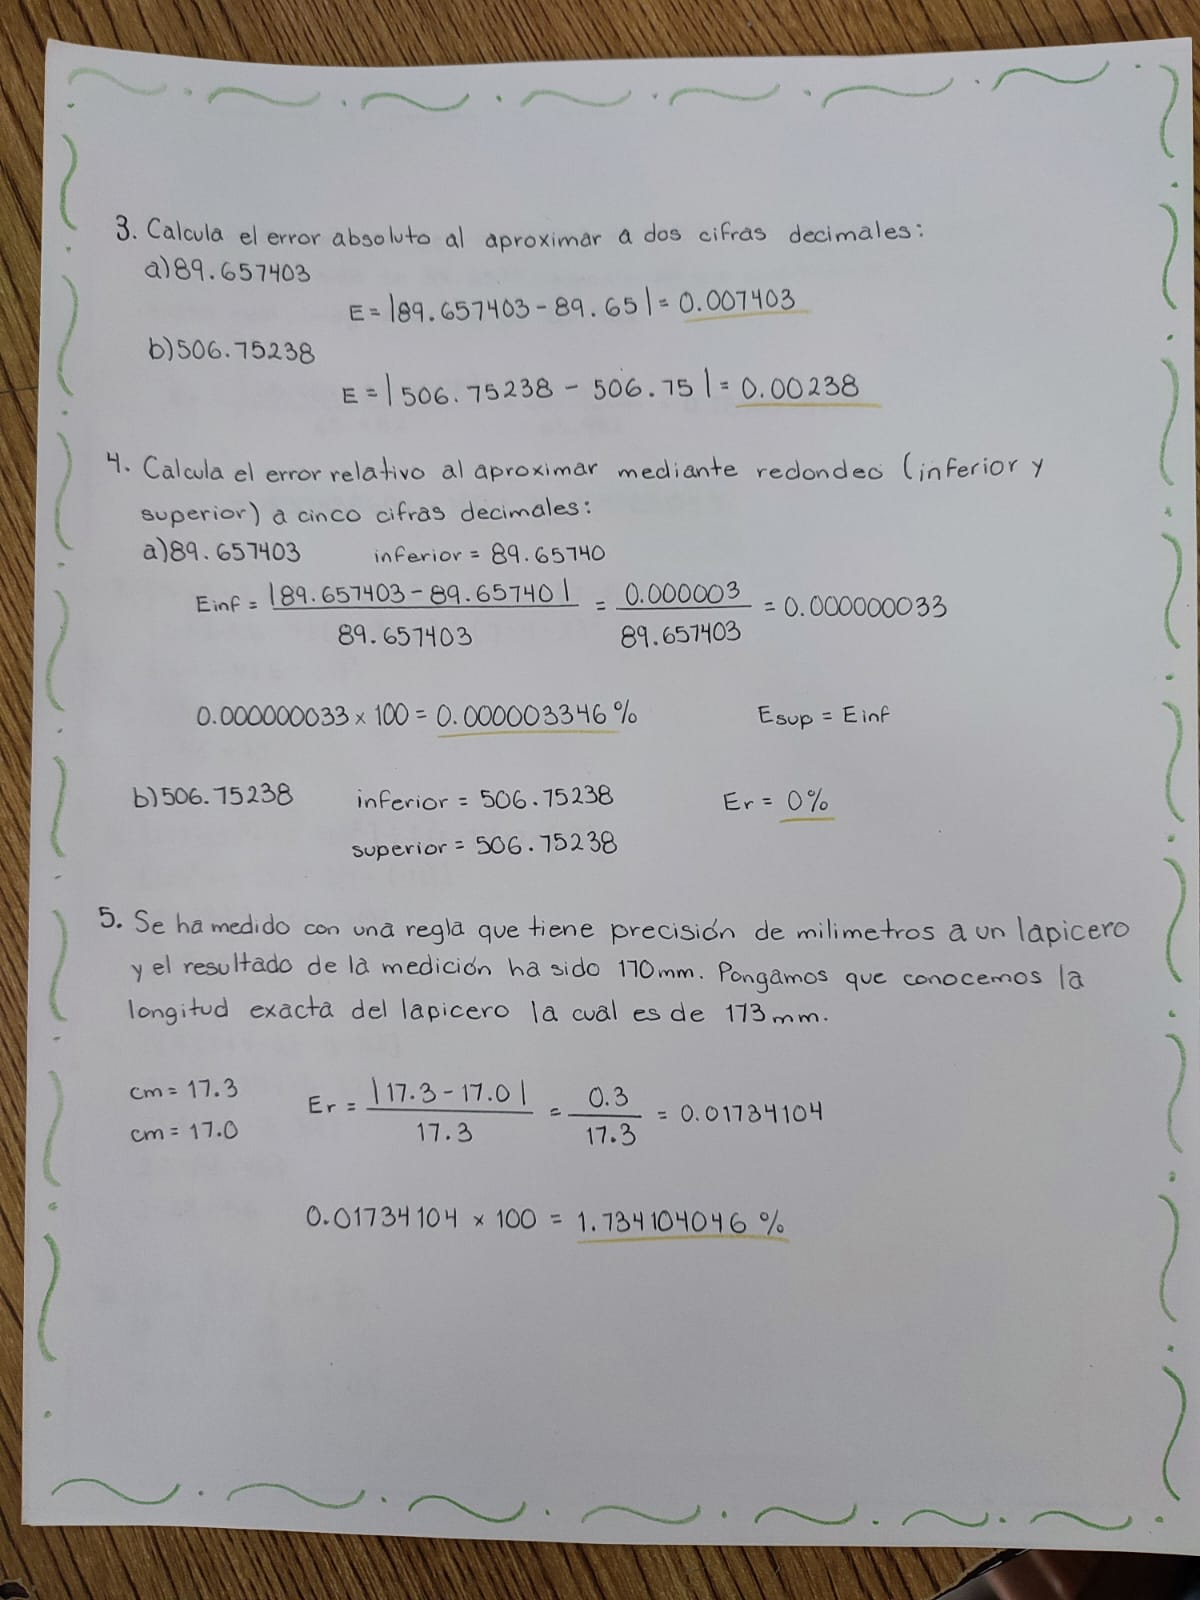 3. Calcula el error absoluto al aproximar a dos cifras decimales:
a)89.657403
E = |89.657403 - 89.65| = 0.007403
b)506.75238
E = | 506.75238 - 506.75 | = 0.00238
4. Calcula el error relativo al aproximar mediante redondeo (inferior y
superior) a cinco cifras decimales:
a)89.657403 inferior = 89.65740
Einf = |89.657403 - 89.65740| / 89.657403 = 0.000003 / 89.657403 = 0.000000033
0.000000033 x 100 = 0.000003346 % Esup = Einf
b)506.75238 inferior = 506.75238 Er = 0%
superior = 506.75238
5. Se ha medido con una regla que tiene precisión de milimetros a un lapicero
y el resultado de la medición ha sido 170mm. Pongamos que conocemos la
longitud exacta del lapicero la cual es de 173mm.
cm = 17.3 Er = |17.3 - 17.0| / 17.3 = 0.3 / 17.3 = 0.01734104
cm = 17.0
0.01734104 x 100 = 1.734104046 %